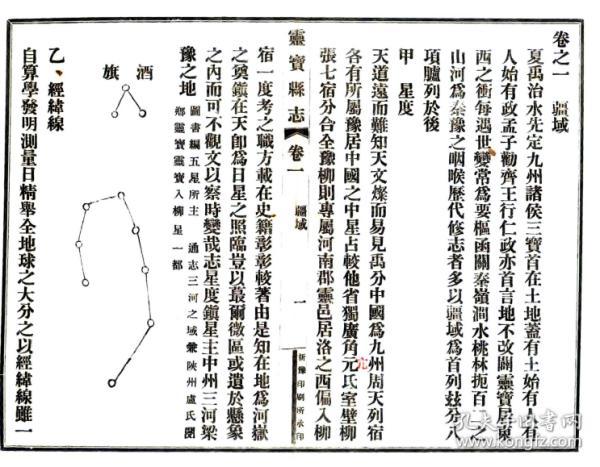 卷之一　疆域
夏禹治水先定九州諸侯三寶首在土地蓋有土始有人有
人始有政孟子勸齊王行仁政亦首言地不改闢靈寶居東
西之衝每遇世變常爲要樞函關秦嶺澗水桃林扼百二之
山河爲秦豫之咽喉歷代修志者多以疆域爲首列玆分八
項臚列於後
甲　星度
天道遠而難知天文燦而易見禹分中國爲九州周天列宿
各有所屬豫居中國之中星占較他省獨廣角元氐室壁柳
亢
張七宿分合全豫柳則專屬河南郡靈邑居洛之西偏入柳
靈寶縣志
卷一
疆域
一
新豫印刷所承印
宿一度考之職方載在史籍彰彰較著由是知在地爲河嶽
之奠鎭在天卽爲日星之照臨豈以蕞爾微區或遺於懸象
之內而可不觀文以察時變哉志星度鎭星主中州三河梁
豫之地
圖書編五星所主　通志三河之域兼陝州盧氏閿
鄉靈寶靈寶入柳星一都
酒旗
乙、經緯線
自算學發明測量日精舉全地球之大分之以經緯線雖一
孔夫子旧书网
kongfz.com